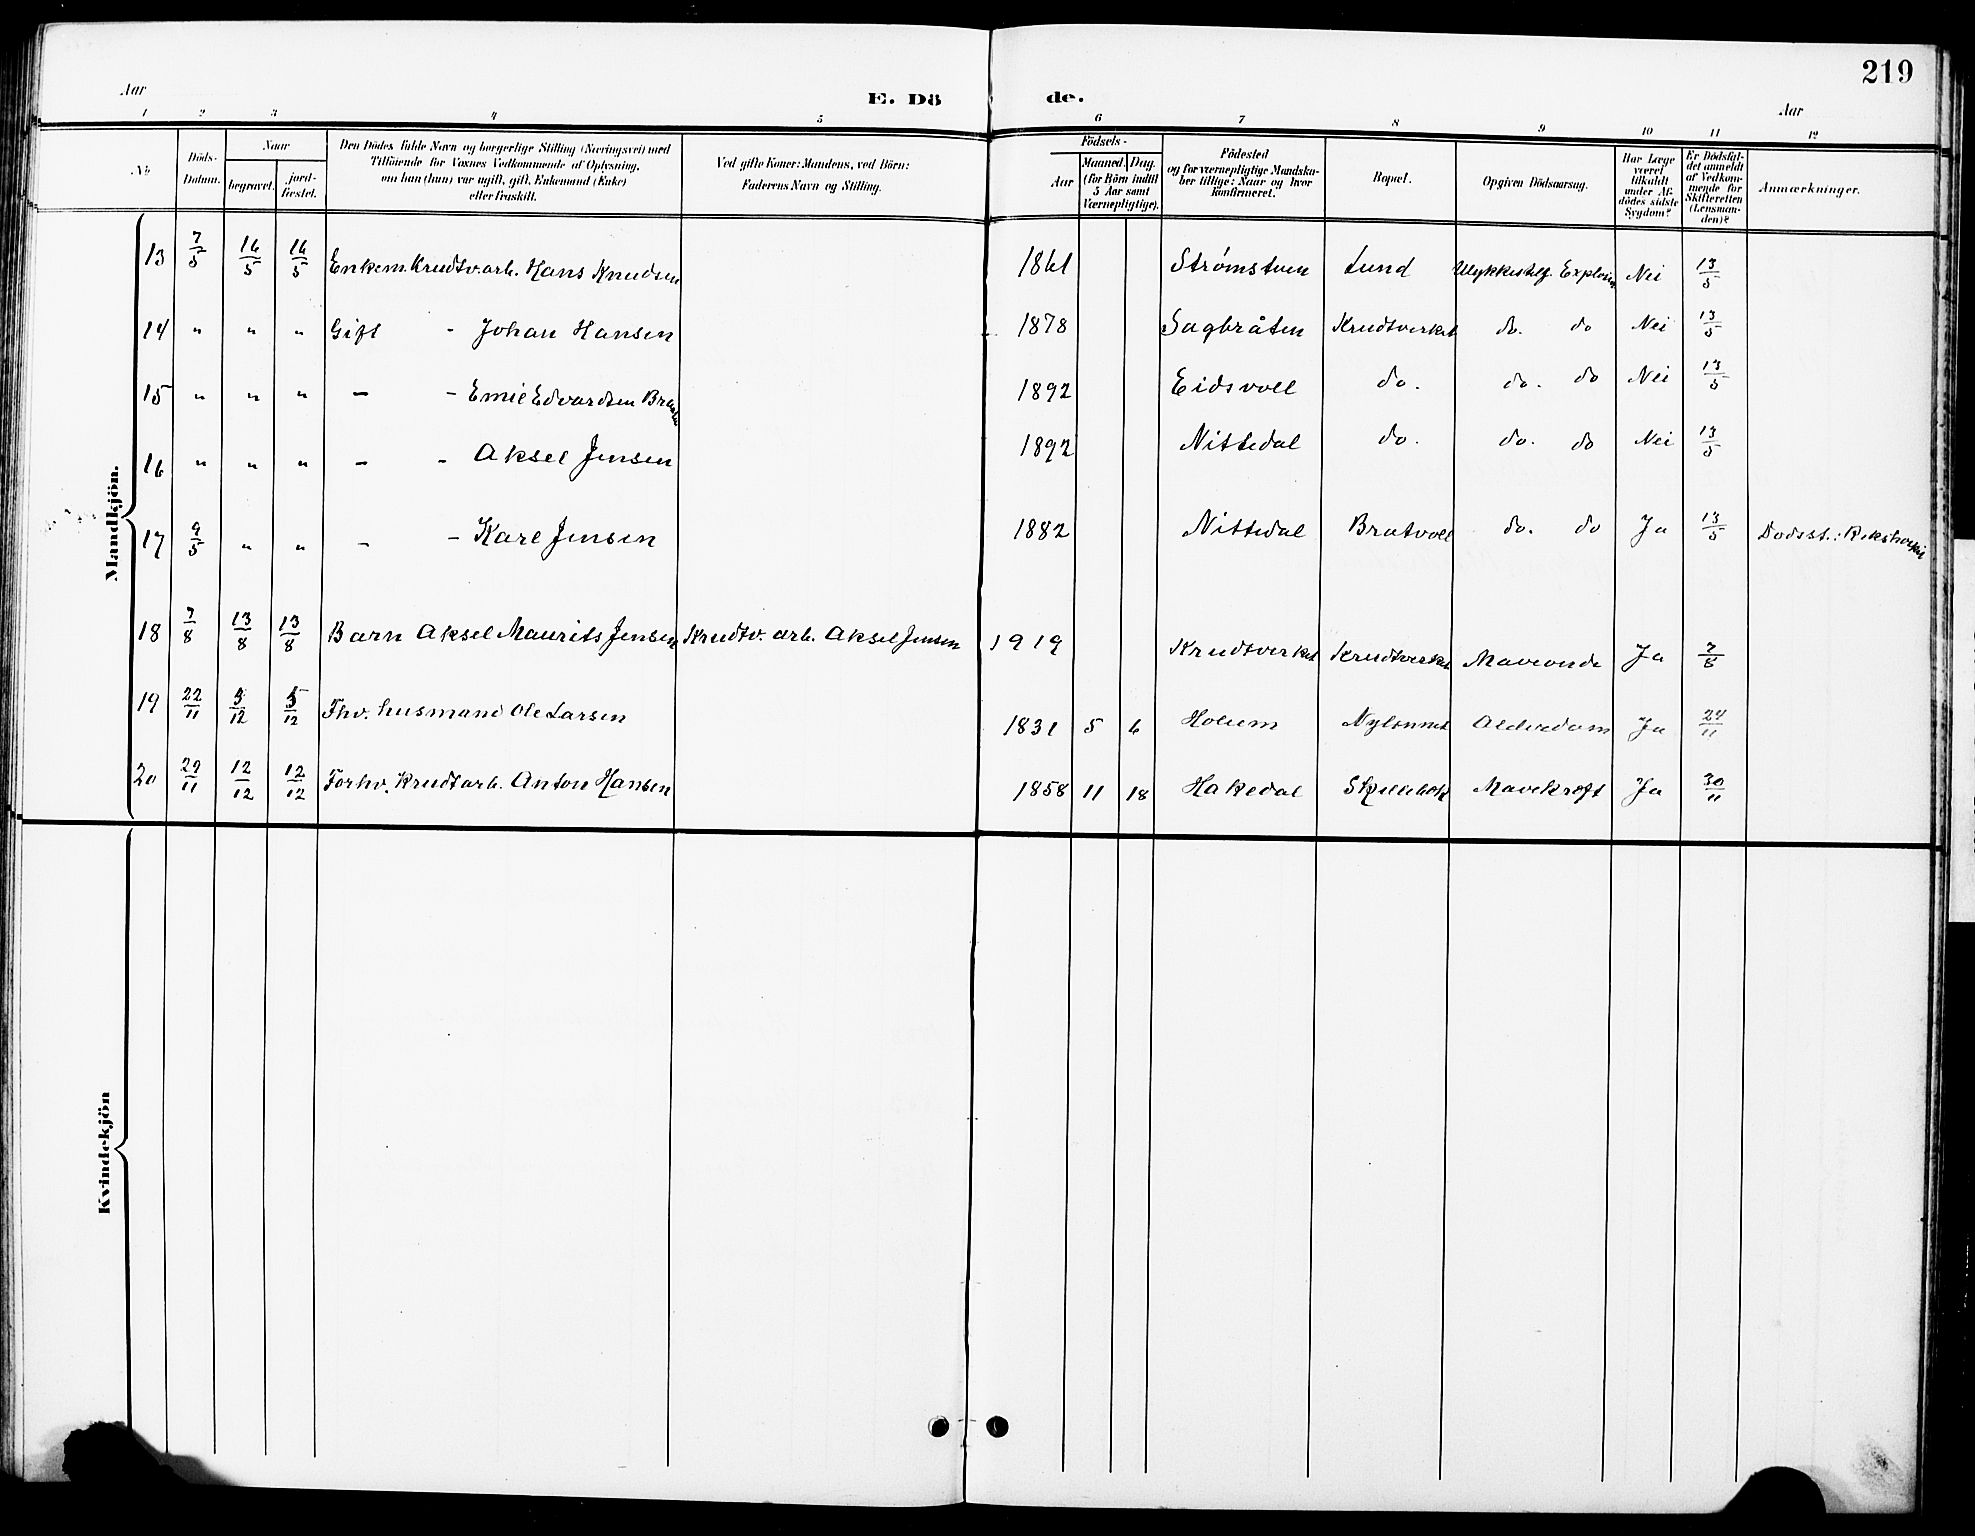 219
Aar E. Dö de. Aar
1 2 3 4 5 6 7 8 9 10 11 12
Nr. Döds-Datum. Naar begravet. jord-fæstet. Den Dödes fulde Navn og borgerlige Stilling (Næringsvei) med Tilföiende for Voxnes Vedkommende af Oplysning, om han (hun) var ugift, gift, Enkemand (Enke) eller fraskilt. Ved gifte Koner: Mandens, ved Börn: Faderens Navn og Stilling. Födsels- Aar Maaned. Dag. (for Börn indtil 5 Aar samt Værnepligtige). Födested og for værnepligtige Mandskaber tillige: Naar og hvor konfirmeret. Bopæl. Opgiven Dödsaarsag. Har Læge været tilkaldt under Afdödes sidste Sygdom? Er Dödsfaldet anmeldt af Vedkommende for Skifteretten (Lensmanden)? Anmærkninger.
Mandkjön.
13 7/5 16/5 16/5 Enkem. Krudtv.arb. Hans Knudsen 1861 Strømstuen Lund Ulykkestilf. Explosion Nei 13/5
14 " " " Gift - Johan Hansen 1878 Sagbråten Krudtverket do. do Nei 13/5
15 " " " - - Emil Edvardsen 1892 Eidsvoll do. do. do Nei 13/5
16 " " " - - Aksel Jensen 1892 Nittedal do. do. do Nei 13/5
17 9/5 " " - - Karl Jensen 1882 Nittedal Bratvoll do. do Ja 13/5 Dødsst.: Rikshospit
18 7/8 13/8 13/8 Barn Aksel Maurits Jensen Krudtv. arb. Aksel Jensen 1919 Krudtverket Krudtverket Maveonde Ja 7/8
19 22/11 5/12 5/12 Fhv. husmand Ole Larsen 1831 5 6 Holum Alderdom Ja 24/11
20 29/11 12/12 12/12 Forhv. Krudtarb. Anton Hansen 1858 11 18 Hakedal Mavekræft Ja 30/11
Kvindekjön